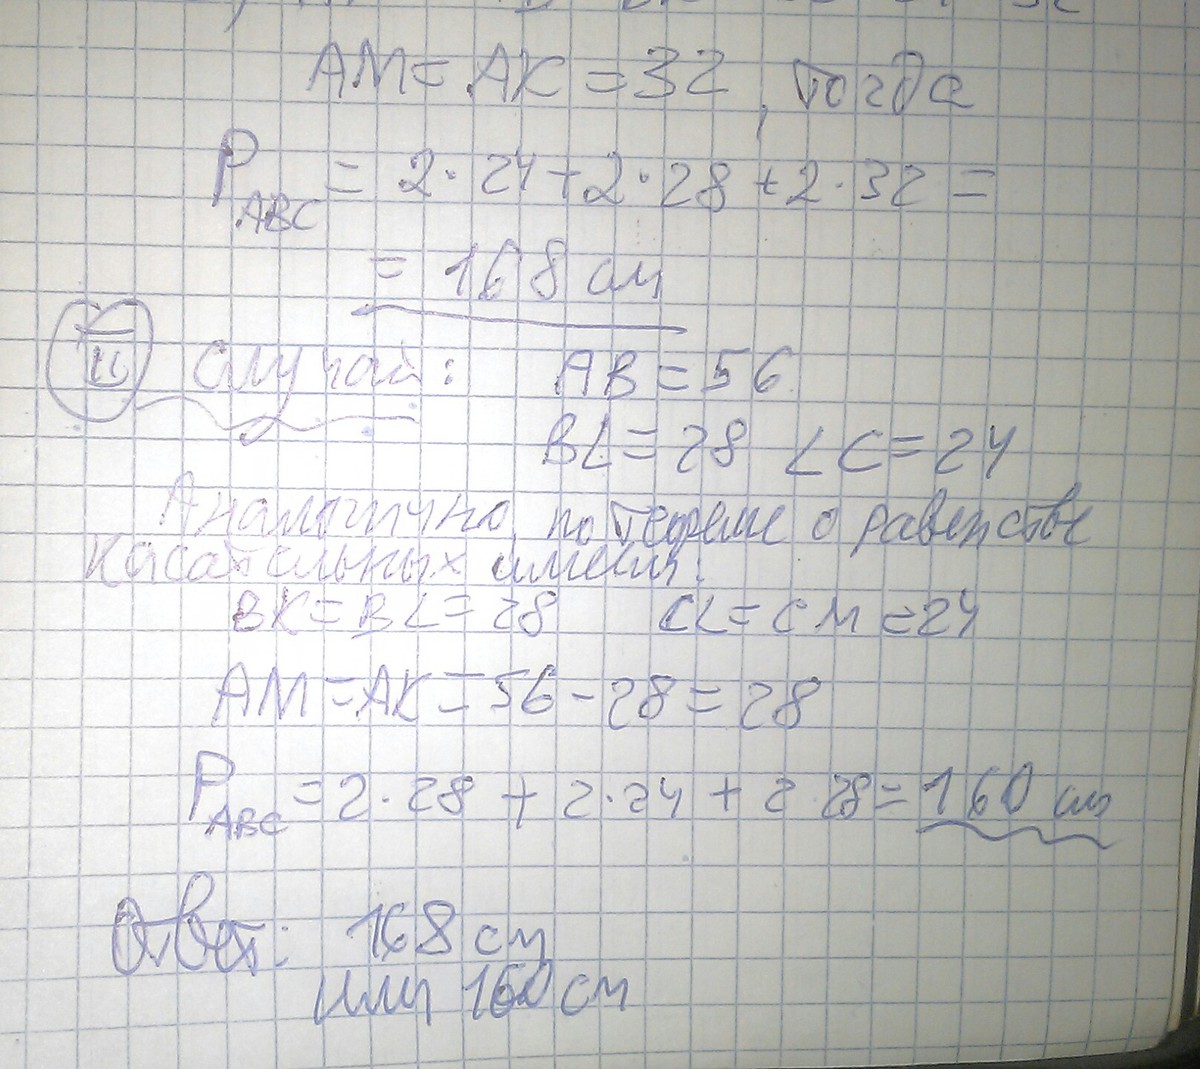 AM = AK = 32, тогда
P_ABC = 2·24 + 2·28 + 2·32 =
= 168 см
II случай: AB = 56
BL = 28 LC = 24
Аналогично, по теореме о равенстве
касательных имеем:
BK = BL = 28 CL = CM = 24
AM = AK = 56 - 28 = 28
P_ABC = 2·28 + 2·24 + 2·28 = 160 см
Ответ: 168 см
или 160 см